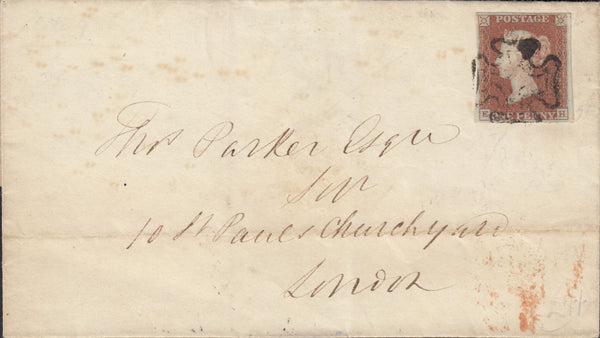 POSTAGE
ONE PENNY
E H
Thos Parker Esqre
Junr
10 St Pauls Churchyard
London